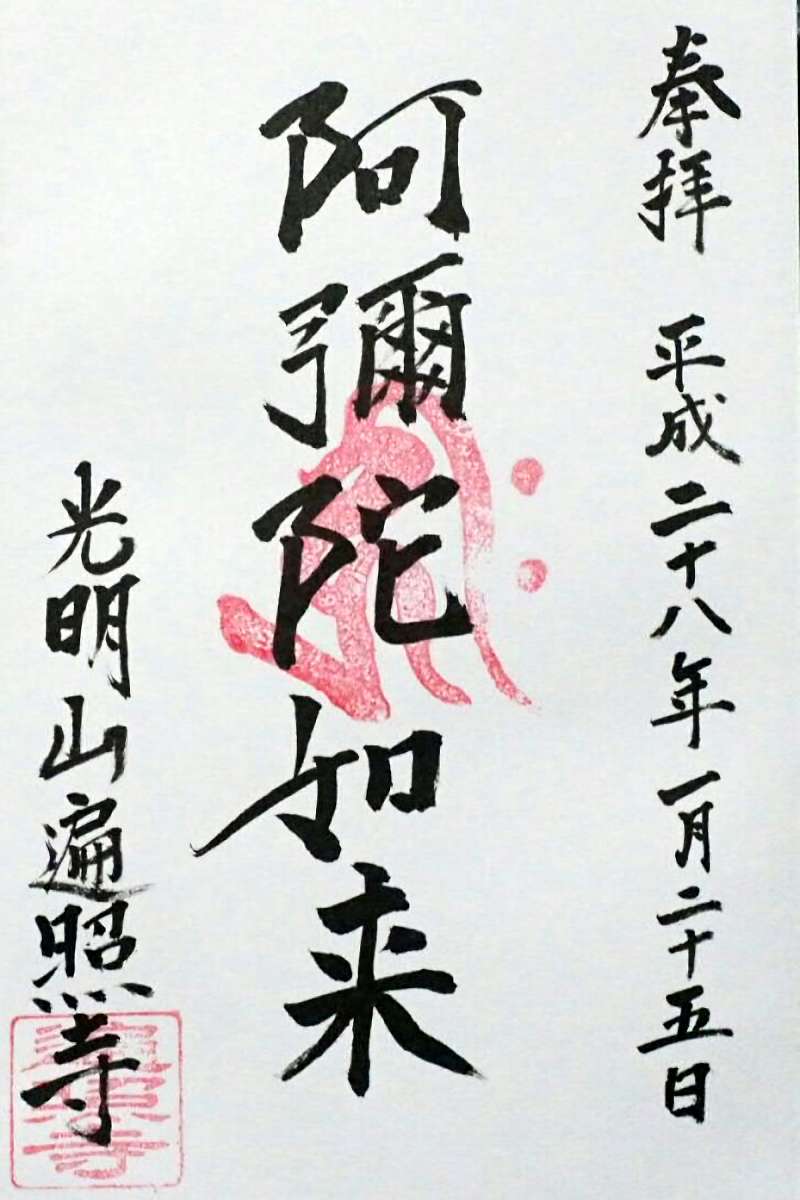 奉拝 平成二十八年一月二十五日
阿彌陀如来
光明山遍照寺
遍照寺